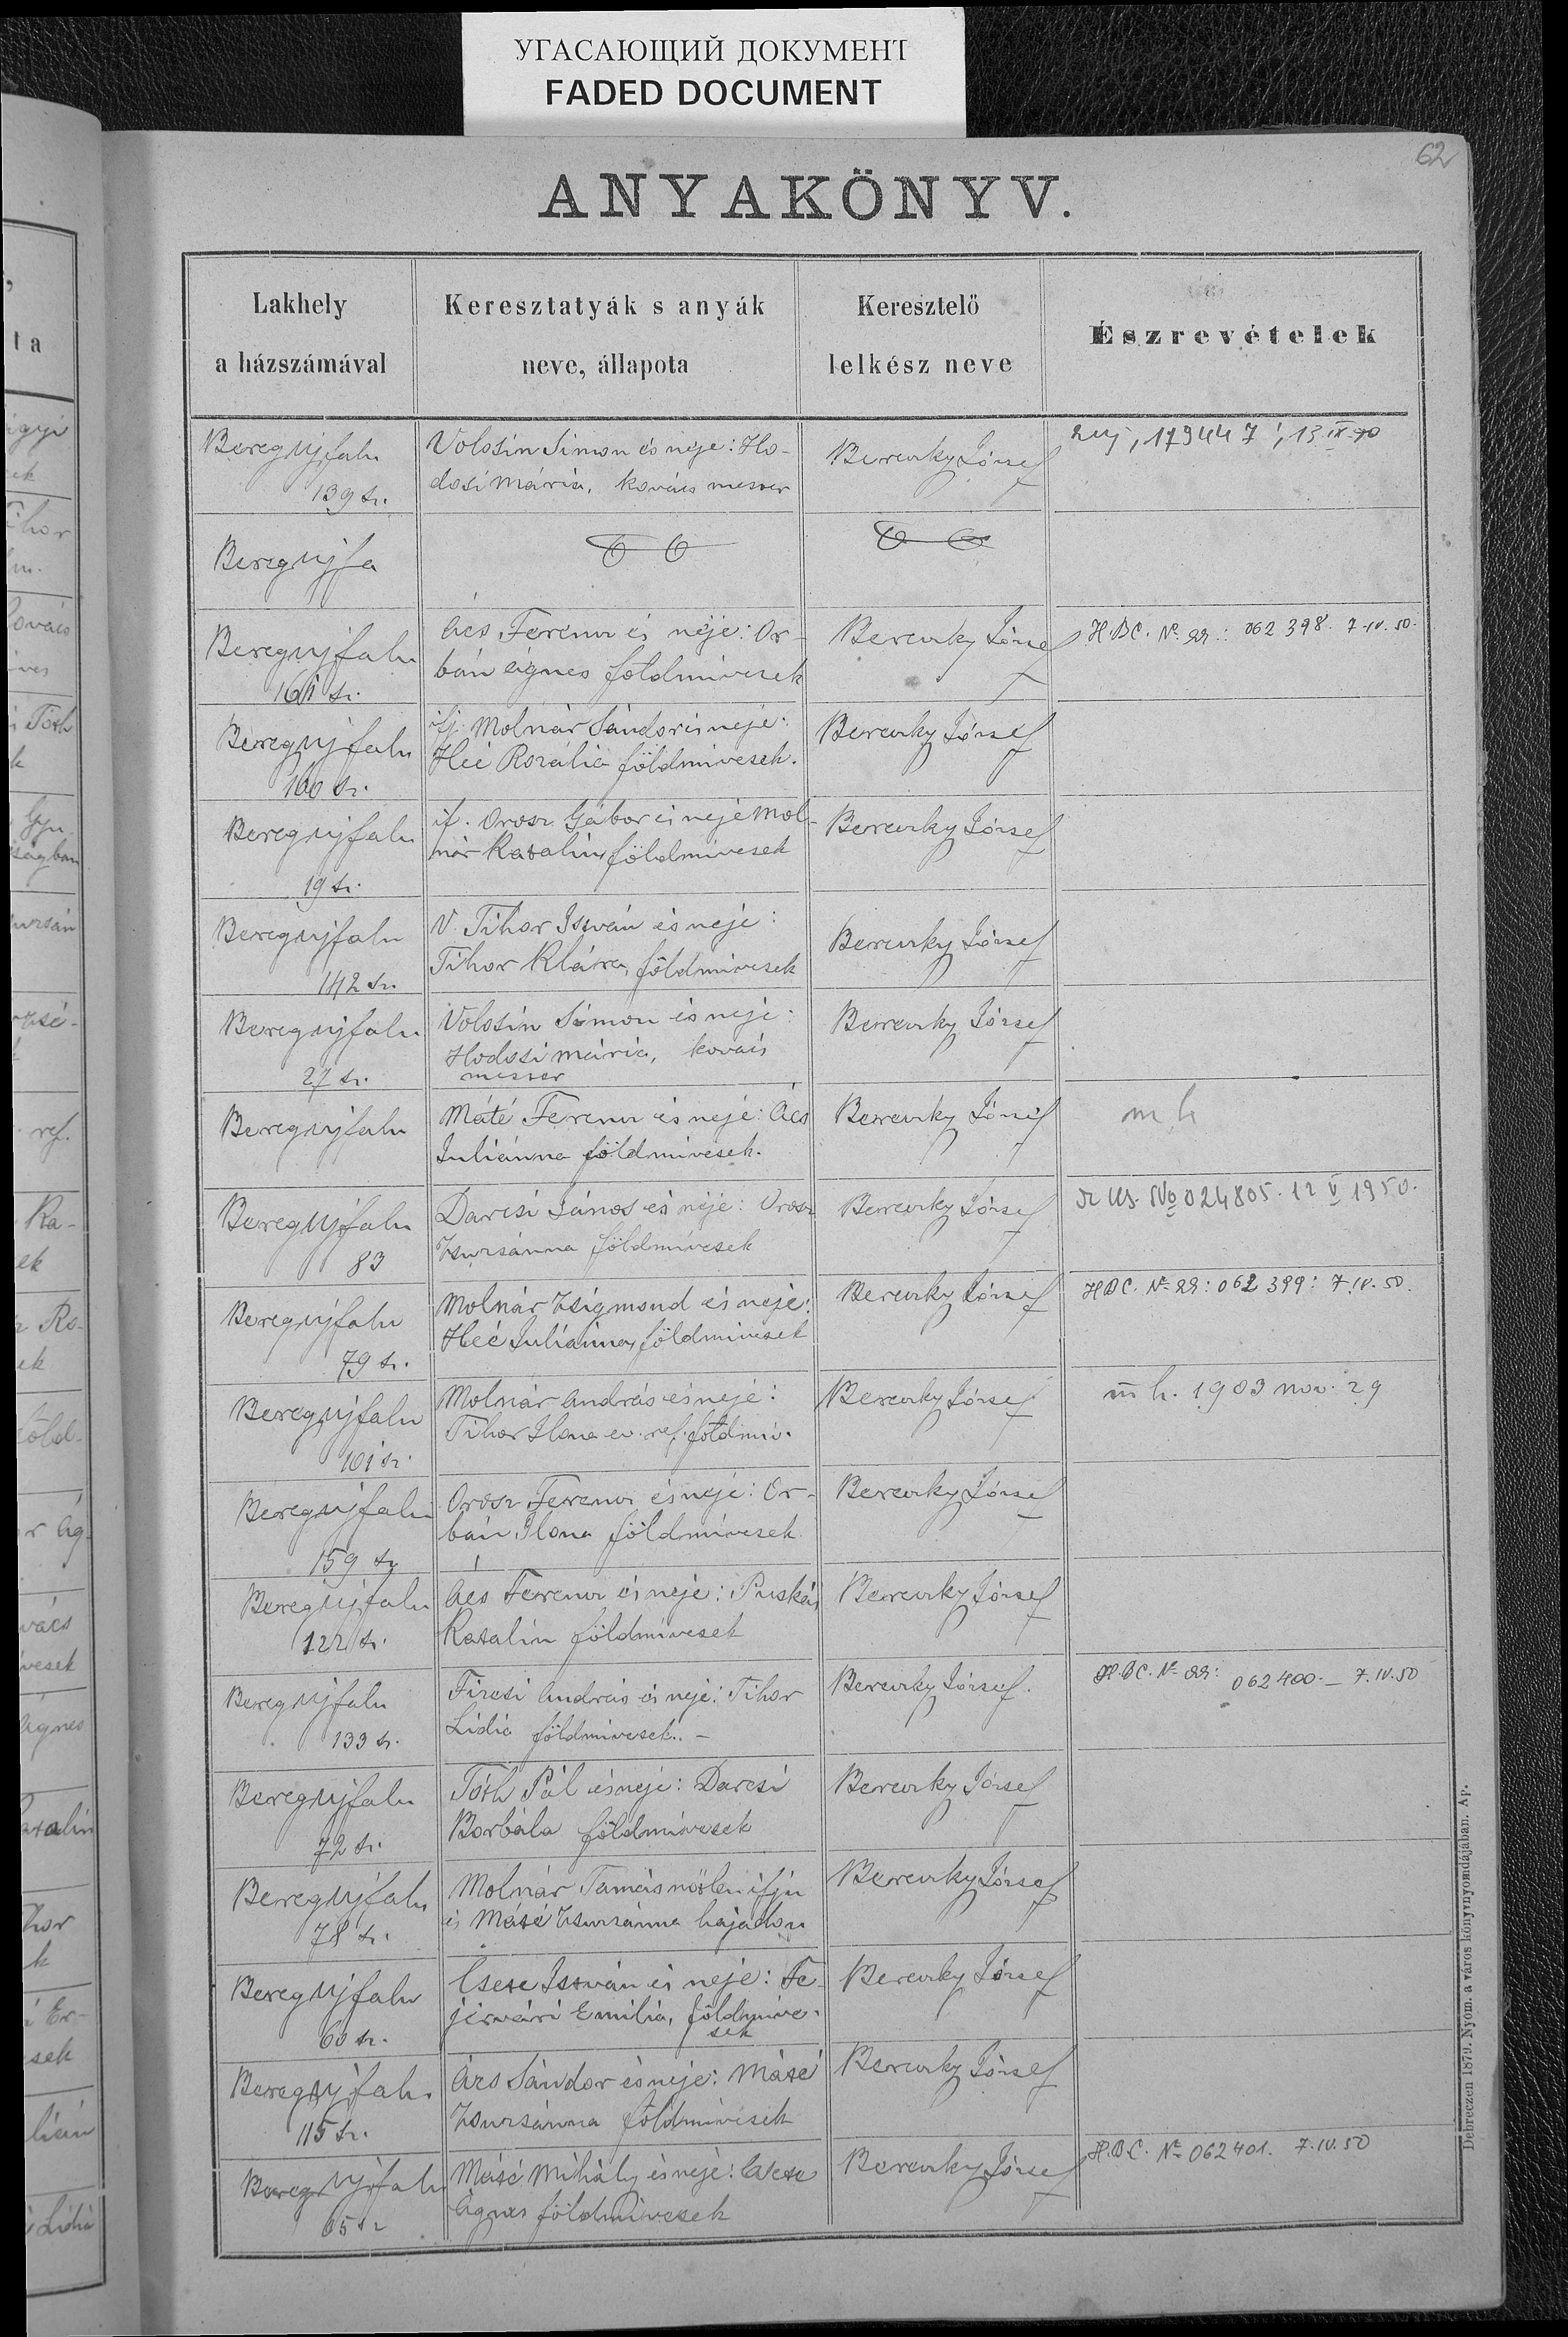 УГАСАЮЩИЙ ДОКУМЕНТ
FADED DOCUMENT
62
ANYAKÖNYV.
Lakhely
a házszámával
Keresztatyák s anyák
neve, állapota
Keresztelő
lelkész neve
Észrevételek
Beregujfalu
139 sz.
Volosin Simon és neje: Ho-
dosi Mária, kovács mester
Bereczky József
179447, 13 IX-70
Beregujfa
Beregujfalu
161 sz.
Ács Ferencz és neje: Or-
bán Ágnes földmivesek
Bereczky József
Н.ВС. № 22: 062398. 7-IV.50.
Beregujfalu
160 sz.
ifj. Molnár Sándor és neje:
Héé Rozália földmivesek.
Bereczky József
Beregujfalu
19 sz.
if. Orosz Gábor és neje Mol-
nár Katalin, földmivesek
Bereczky József
Beregujfalu
142 sz.
V. Tihor István és neje:
Tihor Klára, földmivesek
Bereczky József
Beregujfalu
27 sz.
Volosin Simon és neje:
Hodosi Mária, kovács
mester
Bereczky József
Beregujfalu
Máté Ferencz és neje: Ács
Juliánna földmivesek.
Bereczky József
m h
Beregujfalu
83
Darcsi János és neje: Orosz
Zsuzsánna földmivesek
Bereczky József
№ 024805. 12 V 1950.
Beregujfalu
79 sz.
Molnár Zsigmond és neje:
Héé Juliánna, földmivesek
Bereczky József
Н.ВС. № 22: 062399: 7.IV.50.
Beregujfalu
101 sz.
Molnár András és neje:
Tihor Ilona ev. ref. földmiv.
Bereczky József
m h. 1903 nov. 29
Beregujfalu
159 sz
Orosz Ferencz és neje: Or-
bán Ilona földmivesek
Bereczky József
Beregujfalu
122 sz.
Ács Ferencz és neje: Puskás
Katalin földmivesek
Bereczky József
Beregujfalu
133 sz.
Fircsi András és neje: Tihor
Lidia földmivesek. -
Bereczky József.
Н.ВС. № 22: 062400. - 7.IV.50
Beregujfalu
72 sz.
Tóth Pál és neje: Darcsi
Borbála földmivesek
Bereczky József
Beregujfalu
78 sz.
Molnár Tamás nőtlen ifju
és Máté Zsuzsánna hajadon
Bereczky József
Beregujfalu
60 sz.
Csete István és neje: Fe-
jérvári Emilia, földmive-
sek
Bereczky József
Beregujfalu
115 sz.
Ács Sándor és neje: Máté
Zsuzsánna földmivesek
Bereczky József
Beregujfalu
65 sz
Máté Mihály és neje: Csete
Ágnes földmivesek
Bereczky József
Н.ВС. № 062401. 7.IV.50
Debreczen 1879. Nyom. a város könyvnyomdájában. Ap.